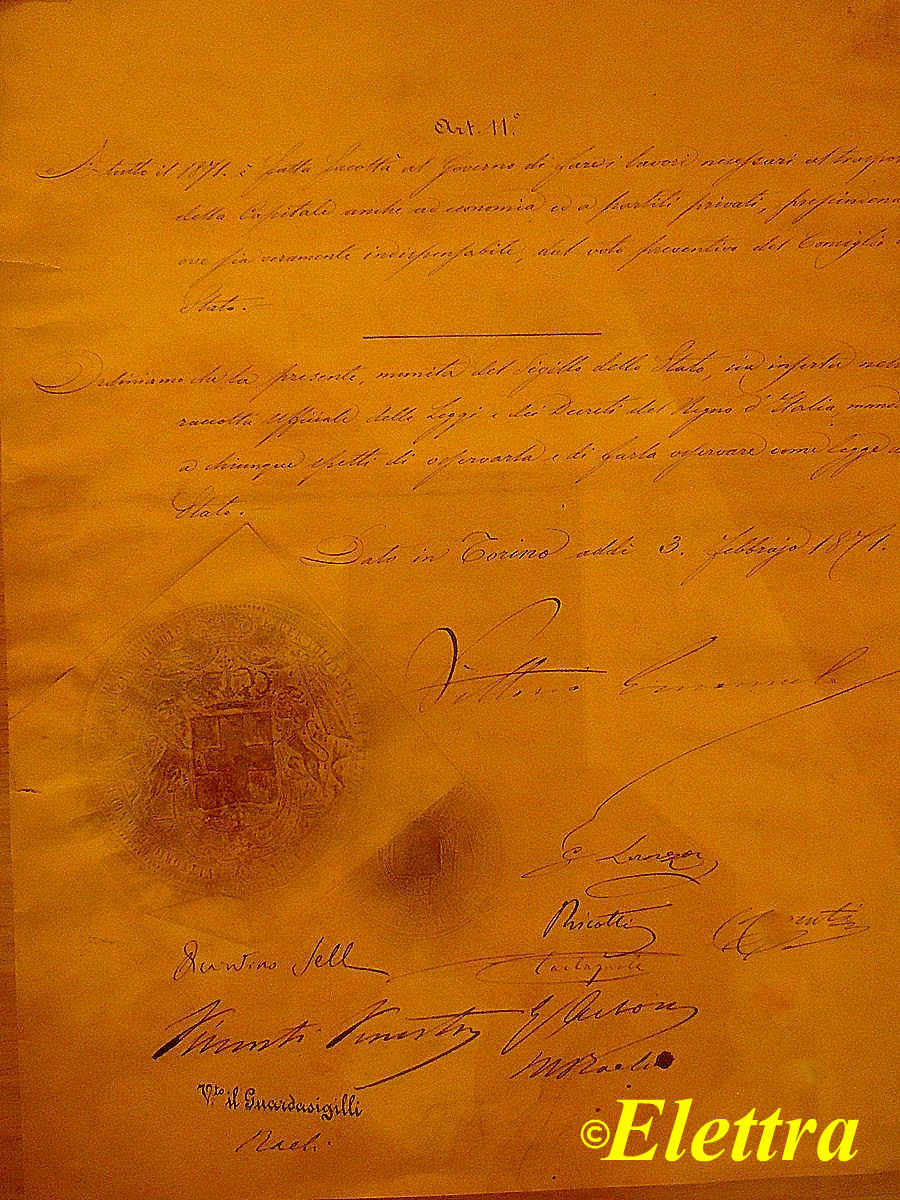 Art. 11.°
A tutto il 1871. è fatta facoltà al Governo di fare i lavori necessari al traspor
della Capitale anche ad economia ed a partiti privati, prescindena
ove sia veramente indispensabile, dal voto preventivo del Consiglio
Stato.
Ordiniamo che la presente, munita del Sigillo dello Stato, sia inserta nell
raccolta Ufficiale delle Leggi e dei Decreti del Regno d'Italia, mand
a chiunque spetti di osservarla e di farla osservare come legge d
Stato.
Dato in Torino addì 3. febbrajo 1871.
Vittorio Emanuele
G. Lanza
Ricotti
Correnti
Quintino Sella
Castagnola
Visconti Venosta
G. Acton
M. Raeli
V.to il Guardasigilli
Raeli
©Elettra